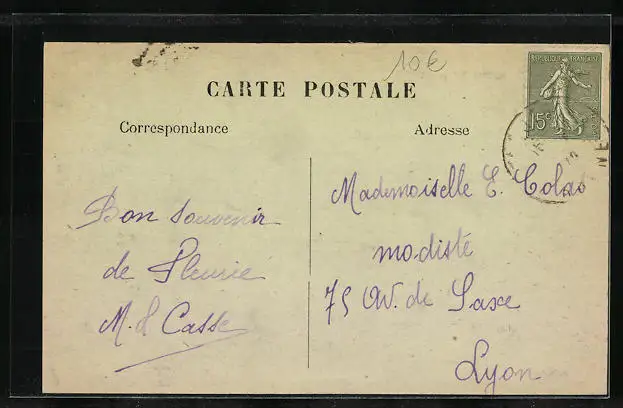 10€
CARTE POSTALE
REPUBLIQUE FRANÇAISE
15c
Correspondance
Adresse
Bon souvenir
de Fleurie
M. L Casse
Mademoiselle E. Colas
modiste
75 Av. de Saxe
Lyon